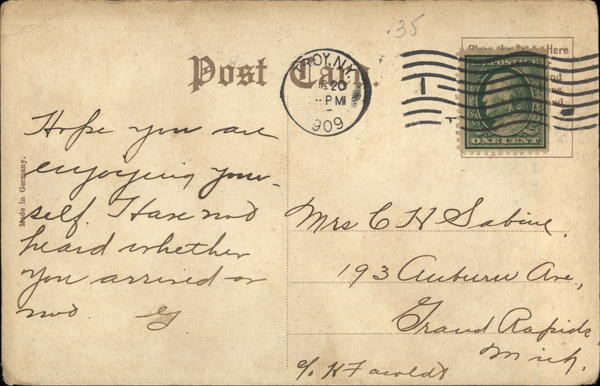 .35
Post Card.
Place the Stamp Here
TROY, N.Y.
20
-PM
1909
Made in Germany.
Hope you are
enjoying your-
self. I have not
heard whether
you arrived or
not.
Mrs C H Sabine.
193 Auburn Ave,
Grand Rapids
Mich.
c/o H F